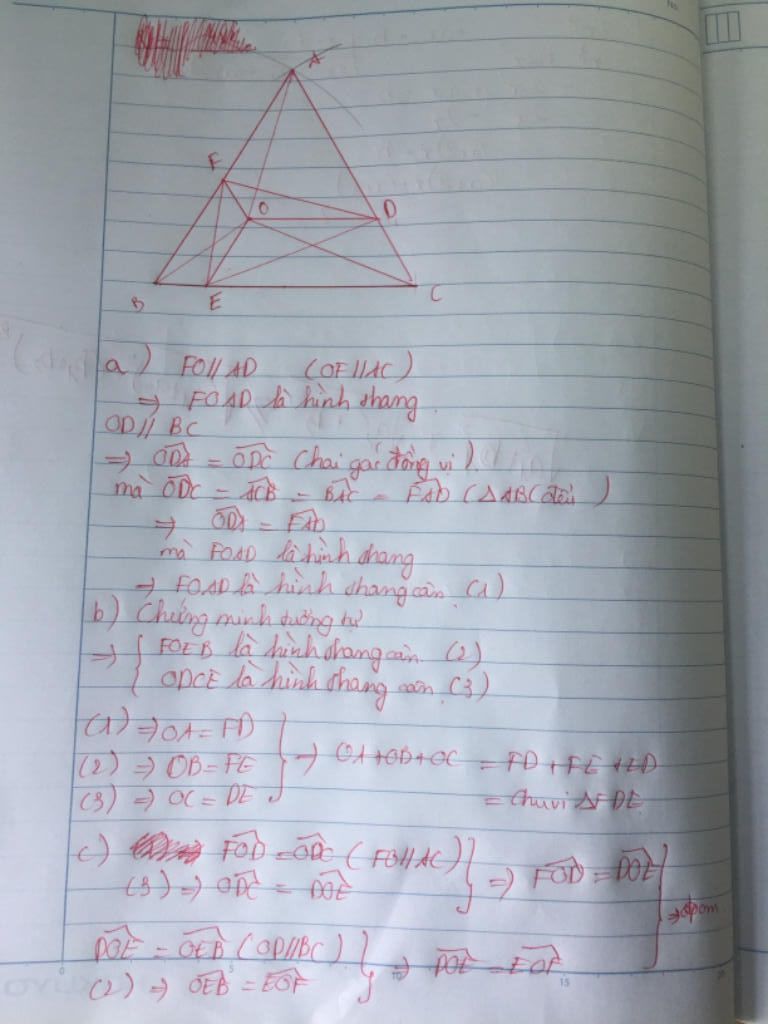 A
F
O
D
B
E
C
a) FO//AD (OF//AC)
⇒ FOAD là hình thang.
OD// BC
⇒ ODA = ODC (hai góc đồng vị)
mà ODC = ACB = BAC = FAD (△ABC đều)
⇒ ODA = FAD
mà FOAD là hình thang
⇒ FOAD là hình thang cân (1)
b) Chứng minh tương tự
⇒ { FOEB là hình thang cân. (2)
ODCE là hình thang cân (3)
(1) ⇒ OA = FD
(2) ⇒ OB = FE } ⇒ OA+OB+OC = FD + FE + ED
(3) ⇒ OC = DE = Chu vi △FDE
c) FOD = ODC (FO//AC) } ⇒ FOD = DOE
(3) ⇒ ODC = DOE
⇒ đpcm
DOE = OEB (OD//BC) } ⇒ DOE = EOF
(2) ⇒ OEB = EOF
0 5 10 15